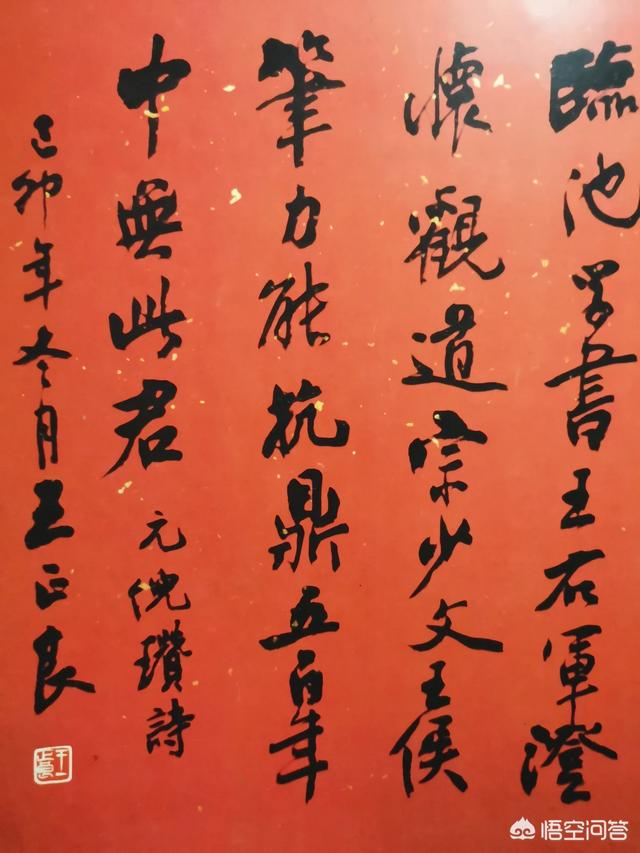 臨池学書王右軍澄
懷觀道宗少文王侯
筆力能抗鼎五百年
中無此君
元倪瓚詩
己卯年冬月王正良
悟空问答